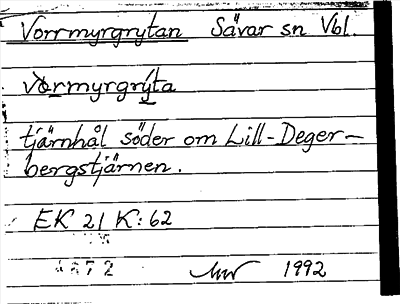 Vorrmyrgrytan Sävar sn Vbl.
vòrmyrgrýta
tjärnhål söder om Lill-Deger-
bergstjärnen.
EK 21 K:62
1992